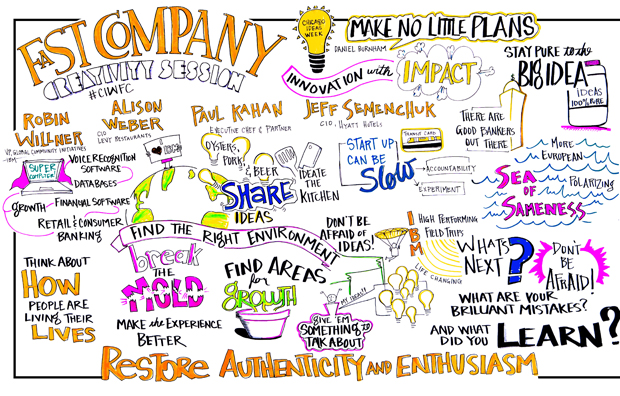 FAST COMPANY
CREATIVITY SESSION
#CIWFC
CHICAGO
IDEAS
WEEK
MAKE NO LITTLE PLANS
DANIEL BURNHAM
INNOVATION with IMPACT
STAY PURE to the
BIG IDEA
IDEAS
100% PURE
ROBIN
WILLNER
VP, GLOBAL COMMUNITY INITIATIVES
IBM
ALISON
WEBER
CIO
LEVY RESTAURANTS
PAUL KAHAN
EXECUTIVE CHEF & PARTNER
JEFF SEMENCHUK
CIO, HYATT HOTELS
THERE ARE
GOOD BANKERS
OUT THERE
SUPER
COMPUTER
VOICE RECOGNITION
SOFTWARE
DATABASES
GROWTH
FINANCIAL SOFTWARE
RETAIL & CONSUMER
BANKING
OYSTERS,
PORK,
& BEER
IDEATE
THE
KITCHEN
SHARE
IDEAS
START UP
CAN BE
SLOW
TRANSIT CARD
ACCOUNTABILITY
EXPERIMENT
MORE
EUROPEAN
POLARIZING
SEA
OF
SAMENESS
FIND THE RIGHT ENVIRONMENT
DON'T BE
AFRAID OF
IDEAS!
IBM
HIGH PERFORMING
FIELD TRIPS
LIFE CHANGING
WHAT'S
NEXT?
DON'T
BE
AFRAID!
THINK ABOUT
HOW
PEOPLE ARE
LIVING THEIR
LIVES
break
THE
MOLD
MAKE the EXPERIENCE
BETTER
FIND AREAS
for
growth
GIVE 'EM
SOMETHING TO
TALK ABOUT
WHAT ARE YOUR
BRILLIANT MISTAKES?
AND WHAT
DID YOU
LEARN?
RESTORE AUTHENTICITY AND ENTHUSIASM